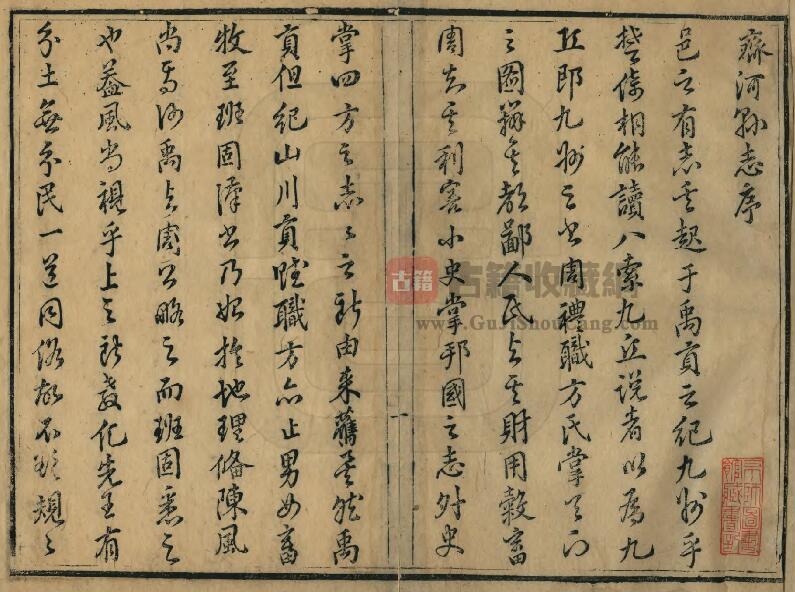 齊河縣志序
邑之有志其起于禹貢之紀九州乎
楚倚相能讀八索九丘說者以為九
丘即九州之書周禮職方氏掌天下
之圖辨其都鄙人民與其財用穀畜
周知其利害小史掌邦國之志外史
掌四方之志志之所由來舊矣然禹
貢但紀山川貢賦職方亦止男女畜
牧至班固漢書乃始於地理備陳風
尚焉何禹與周公略之而班固悉之
也蓋風尚視乎上之所教化先王有
分土無分民一道同俗故不必規規
古籍
古籍收藏網
www.GuJiShouCang.com